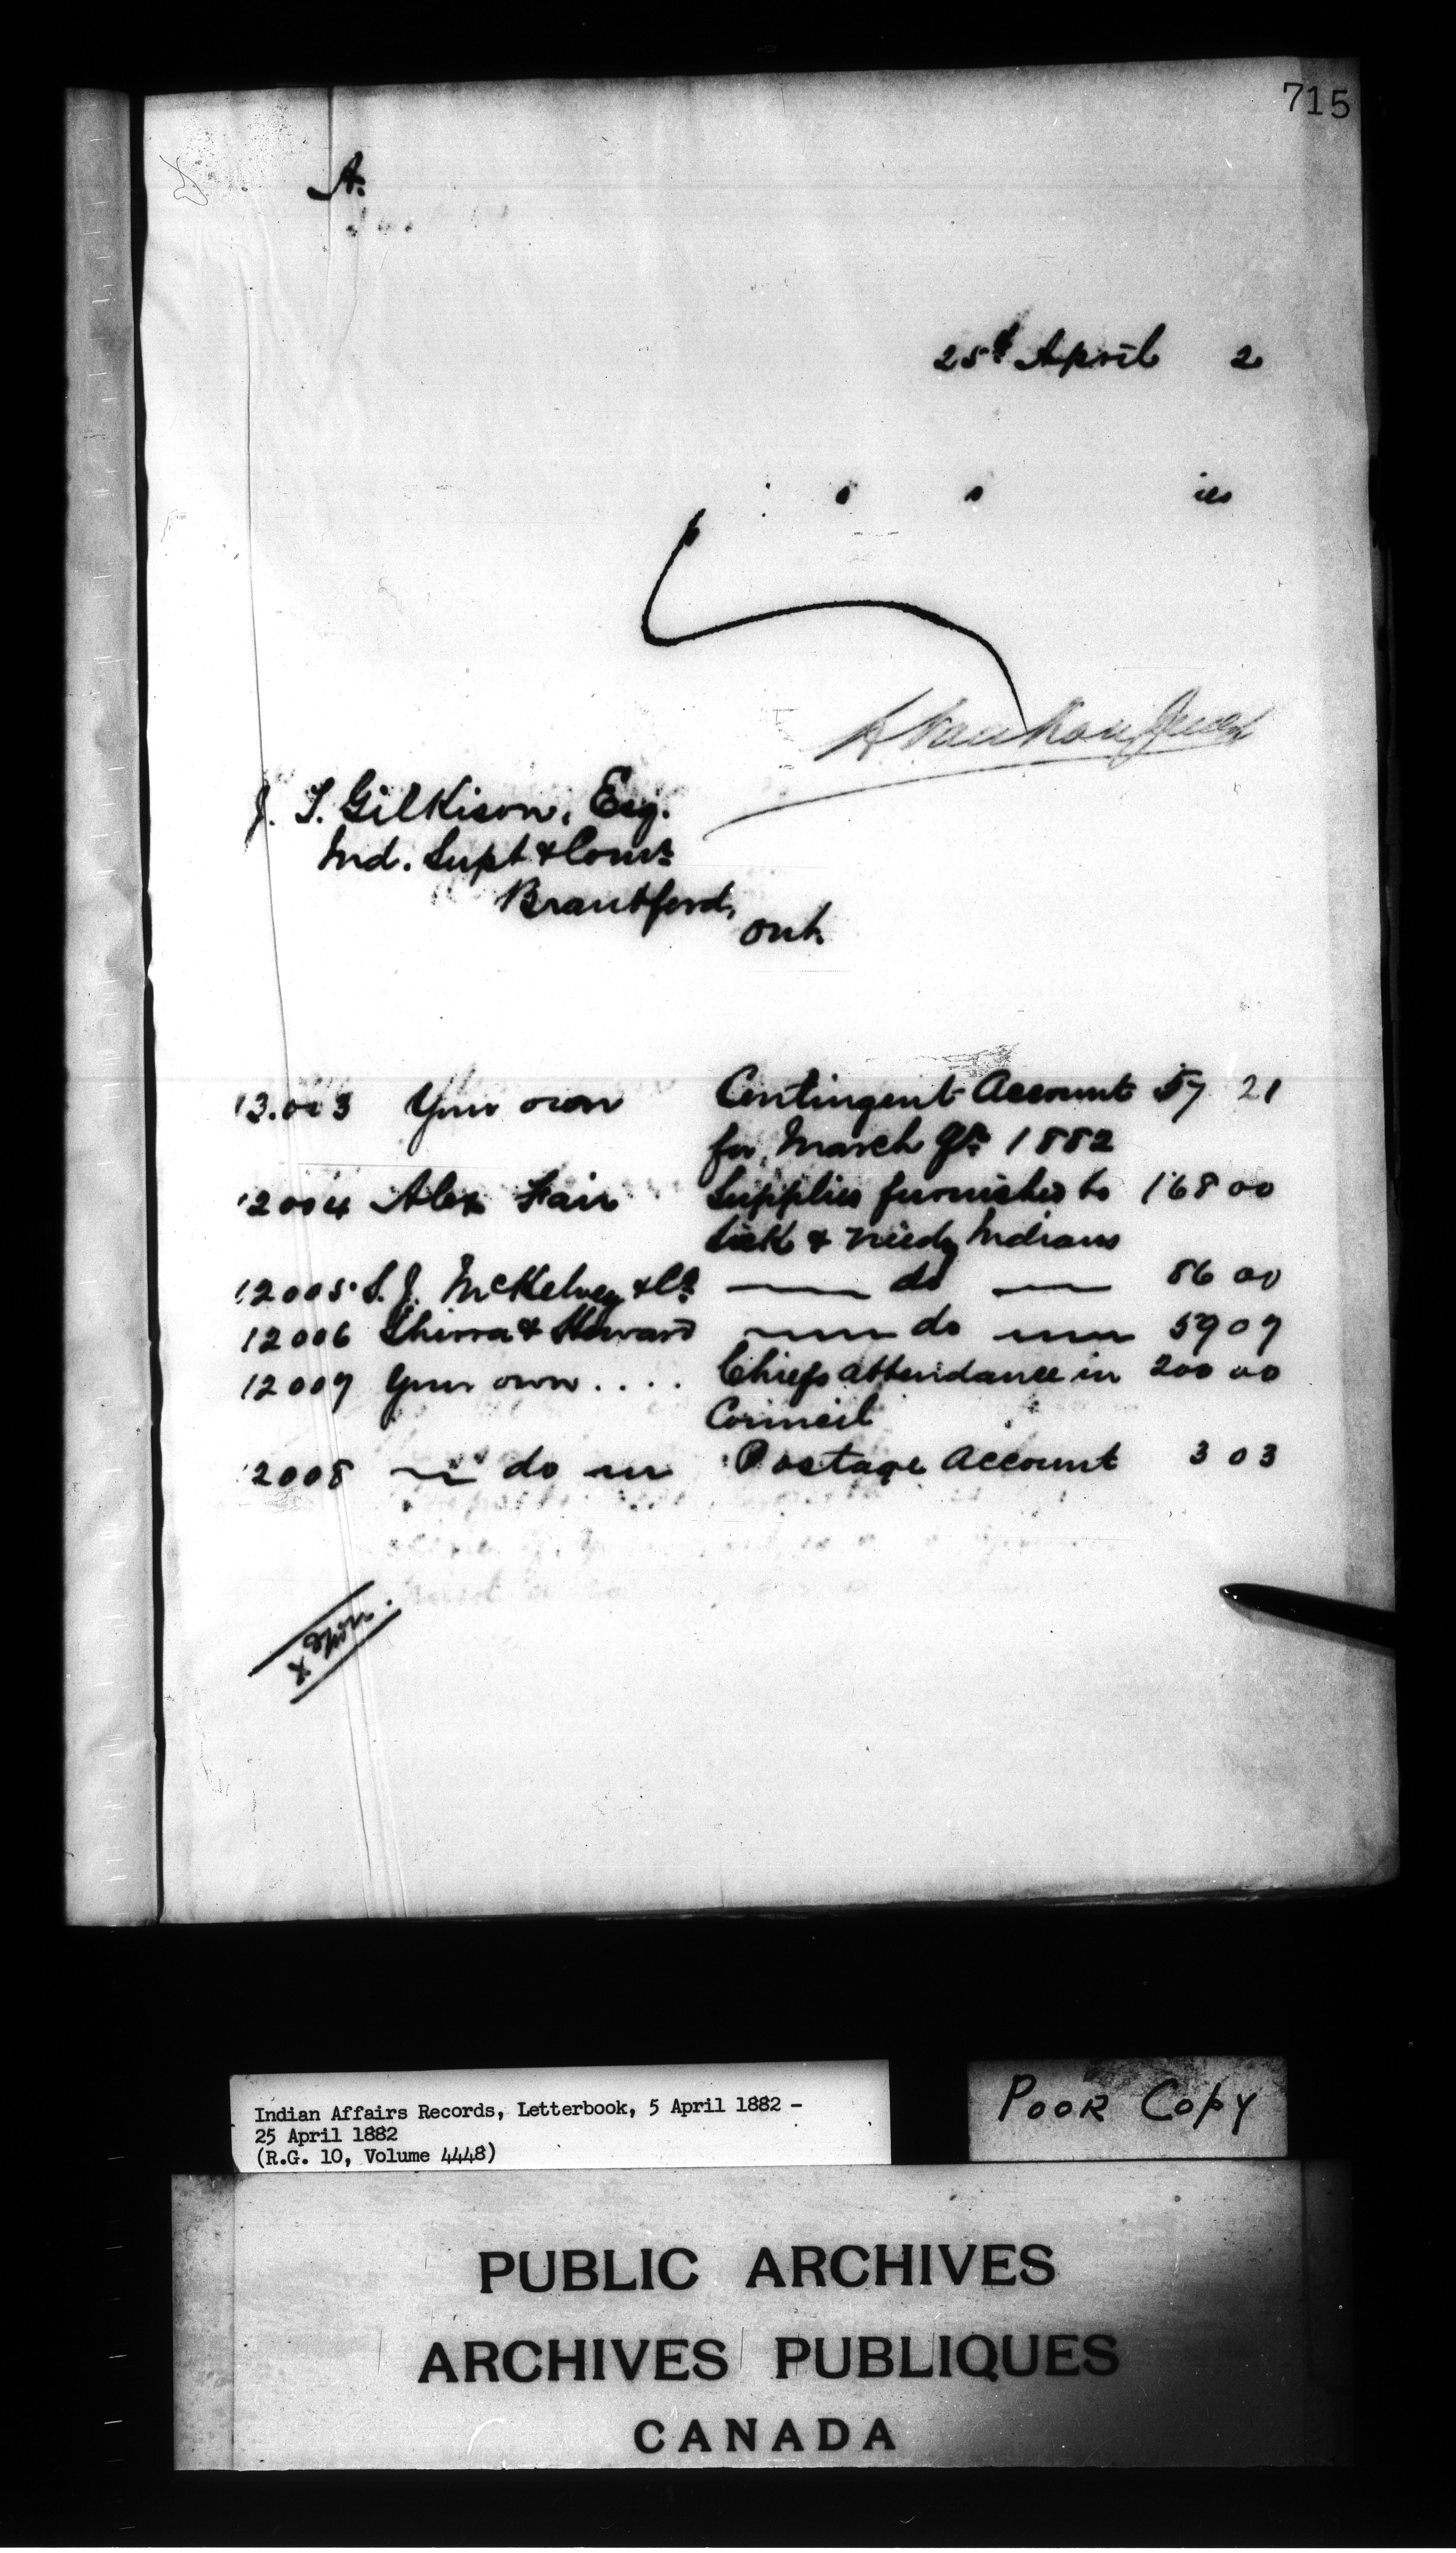 715
A.
25th April 2
ies
J. T. Gilkison, Esq.
Ind. Supt & Comr
Brantford,
Ont.
Your own Contingent Account 57 21
for March Qr. 1882
12004 Alex Fair Supplies furnished to 168 00
Sick & needy Indians
12005 S. J. McKelvey & Co. do 86 00
12006 & Howard do 59 07
12007 Your own .... Chiefs attendance in 200 00
Council
2008 do Postage Account 3 03
Indian Affairs Records, Letterbook, 5 April 1882 -
25 April 1882
(R.G. 10, Volume 4448)
POOR COPY
PUBLIC ARCHIVES
ARCHIVES PUBLIQUES
CANADA